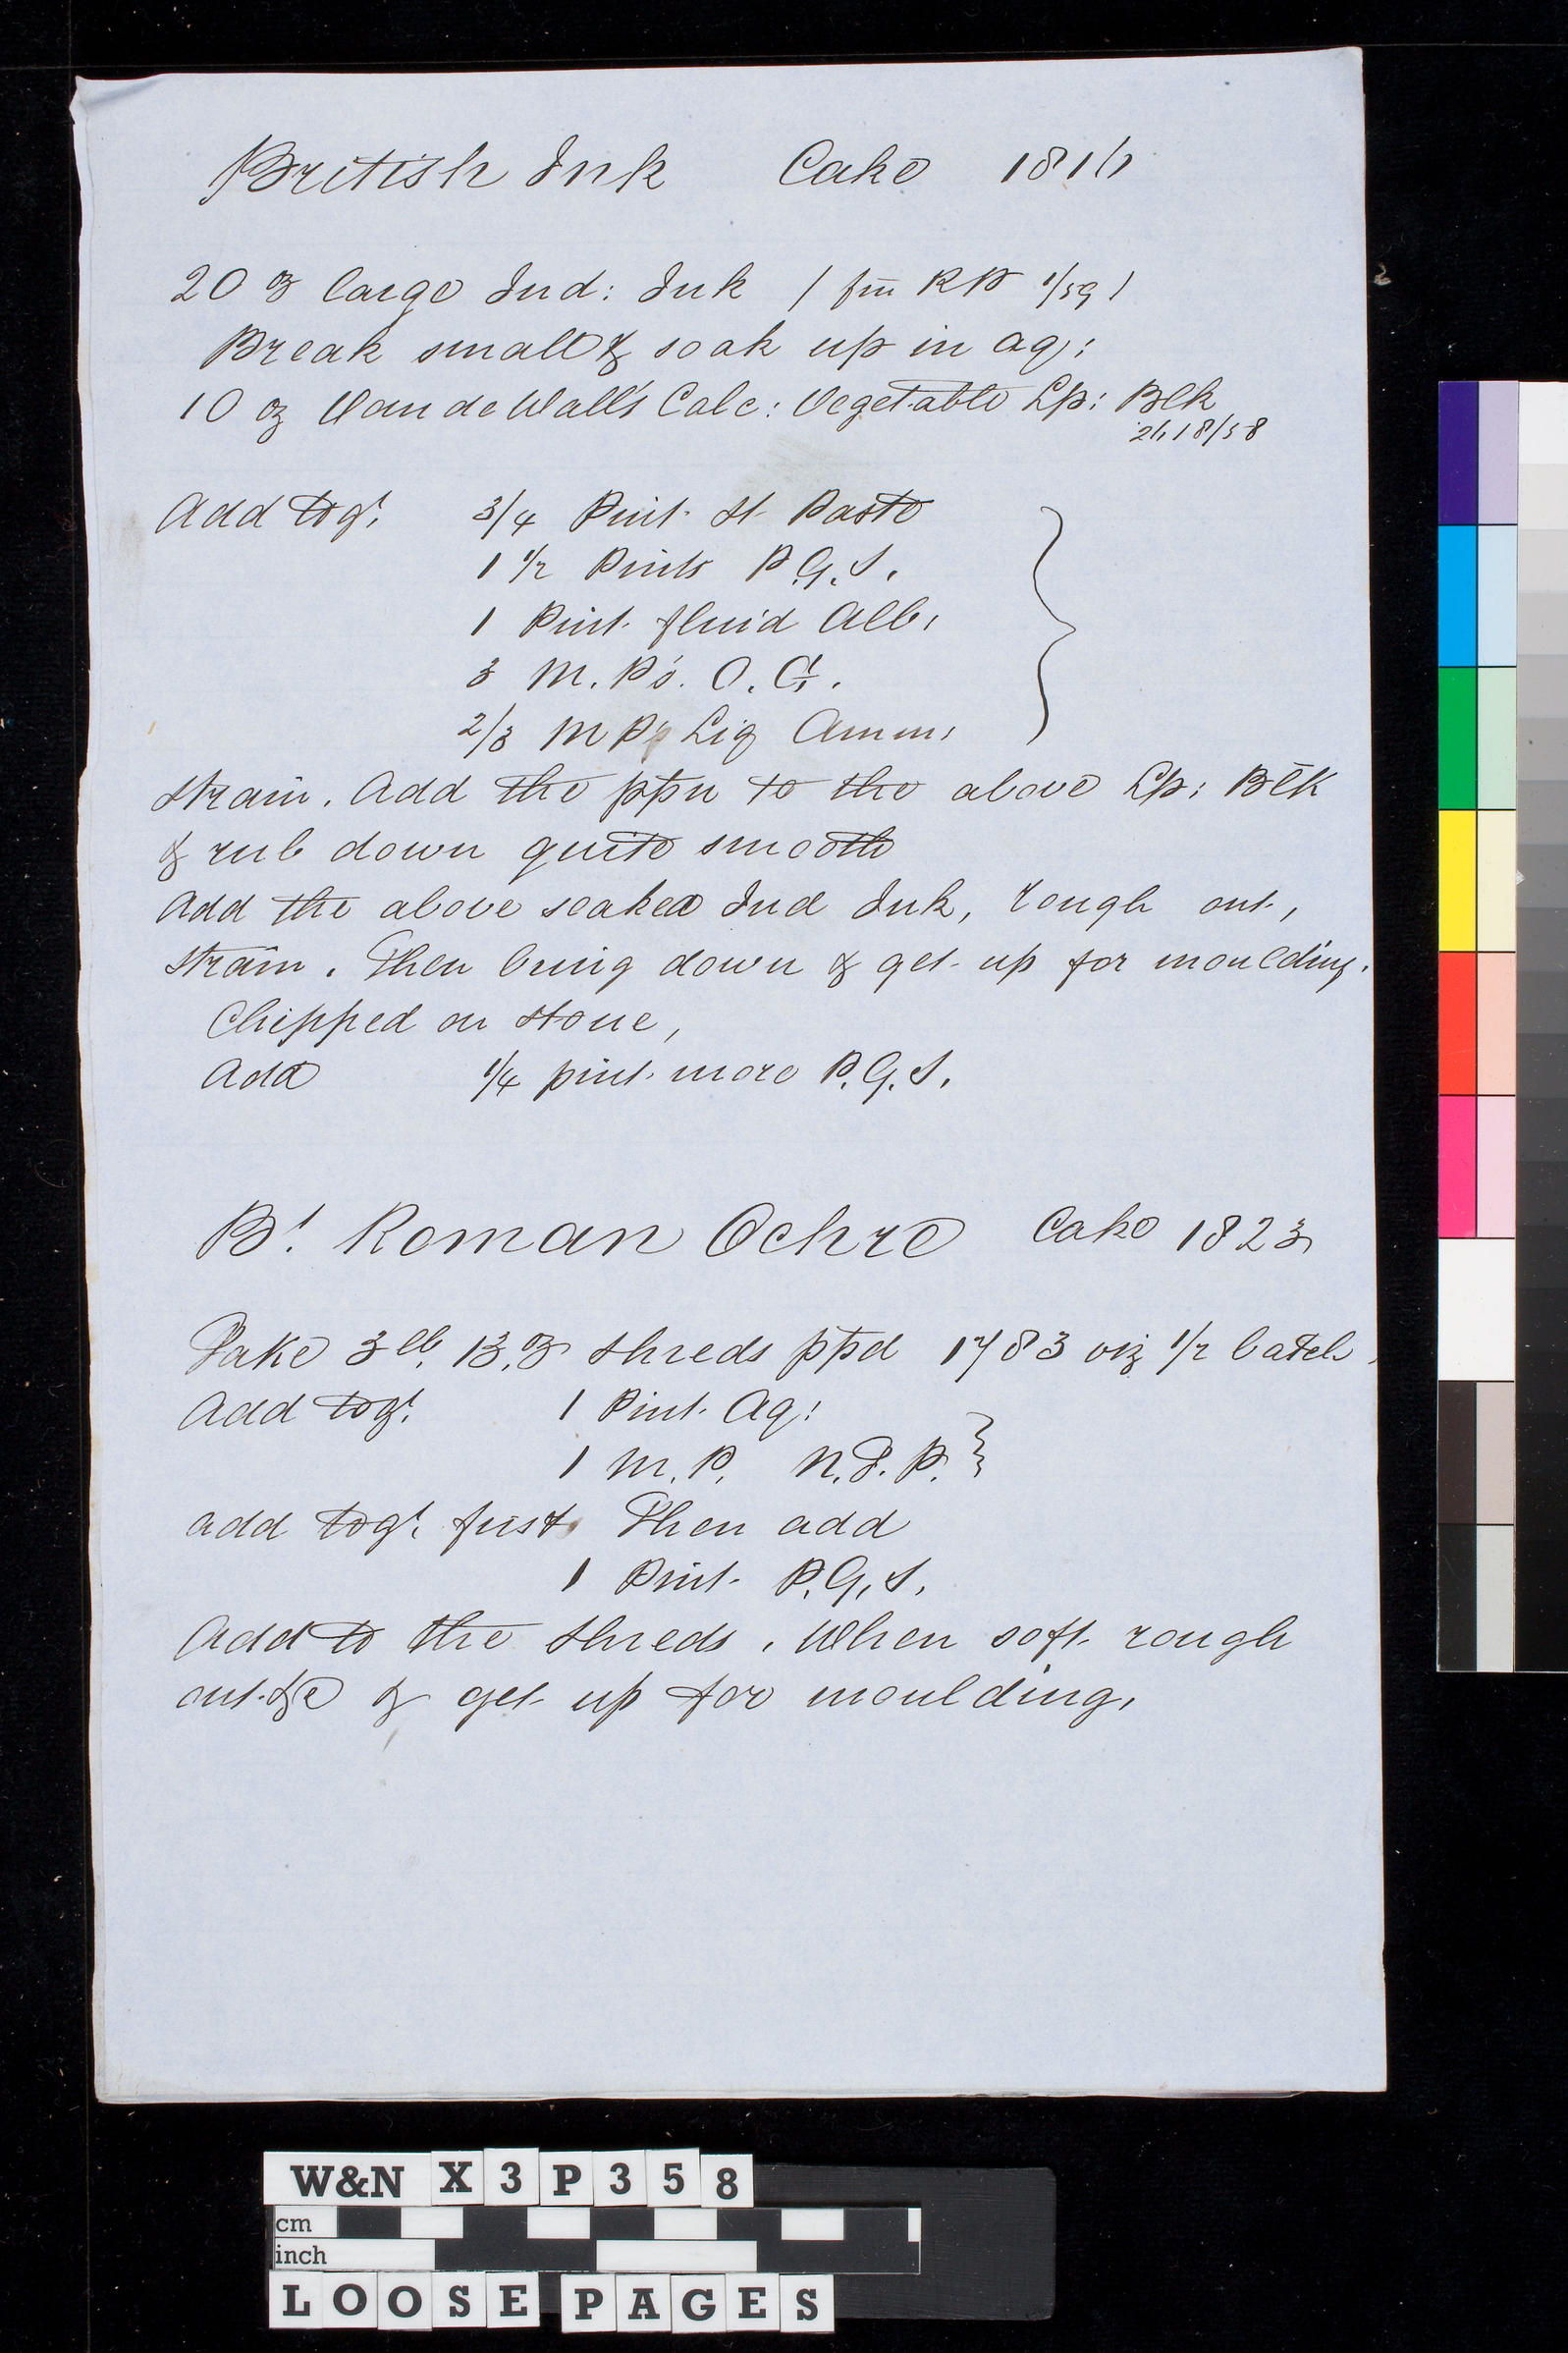 British Ink Cake 1816
20 oz large Ind: Ink / fm RP 1/59 /
Break small & soak up in aq:
10 oz Van de Wall's Calc: Vegetable Lp: Blk
18/58
Add togr. 3/4 Pint St Paste
1 1/2 Pints P.G.S.
1 Pint fluid Alb.
3 M.P's. O.G.
2/3 M P's Liq Amm.
Strain. Add the ppn to the above Lp: Blk
& rub down quite smooth
Add the above soaked Ind Ink, rough out,
strain. Then bring down & get up for moulding.
Chipped on stone,
Add 1/4 pint more P.G.S.
Bt. Roman Ochre Cake 1823
Take 3 lb. 13.oz shreds ppd 1783 viz 1/2 batch.
Add togr. 1 Pint Aq:
1 M.P. N.S.P.
add togr. first. Then add
1 Pint P.G.S.
Add to the shreds. When soft rough
out &c & get up for moulding.
W&N X3P358
cm
inch
LOOSE PAGES